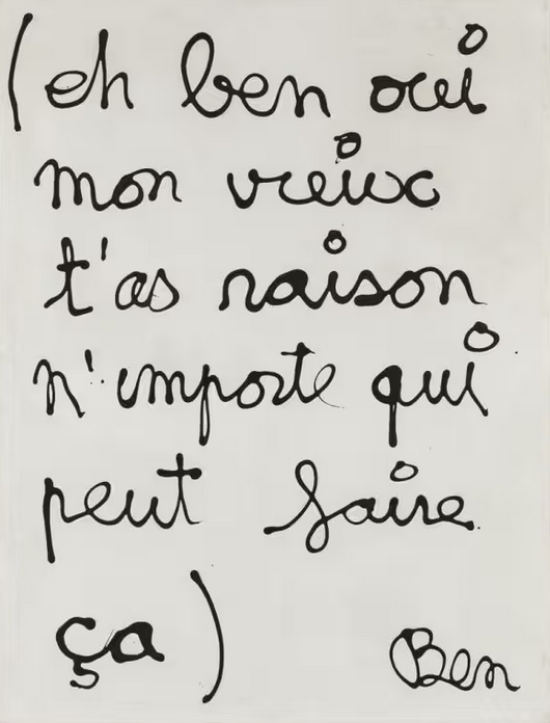 (eh ben oui
mon vieux
t'as raison
n'importe qui
peut faire
ça)
Ben